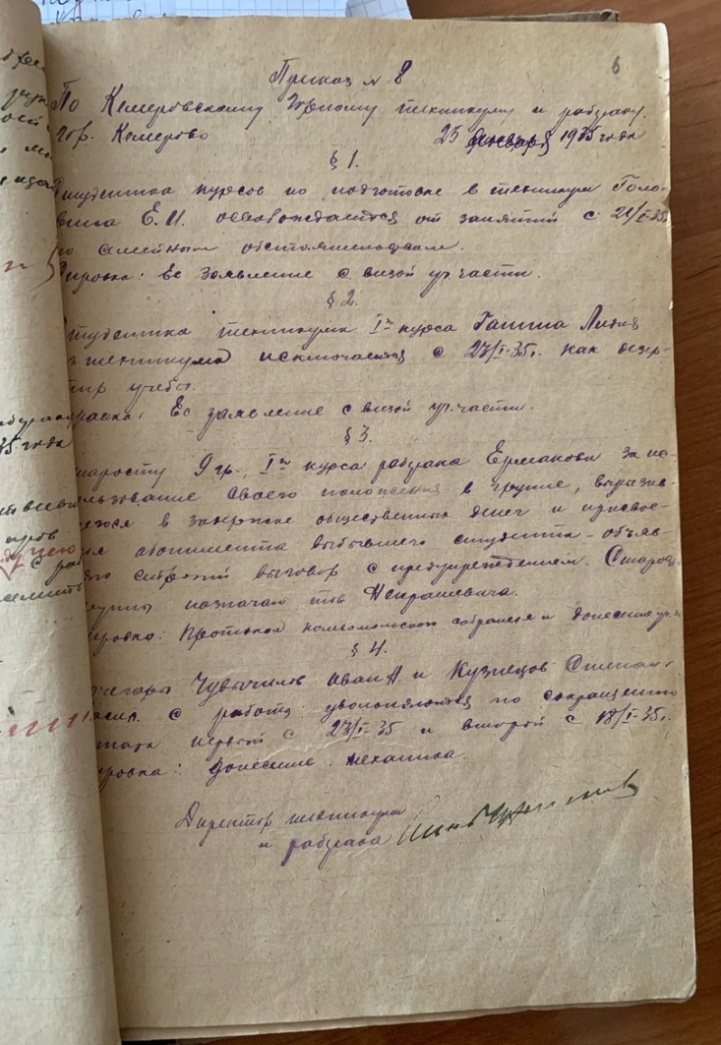 6
Приказ № 8
По Кемеровскому Горному техникуму и рабфаку
гор. Кемерово 25 января 1935 года
§ 1.
Студентка курсов по подготовке в техникум Голо-
вина Е.И. освобождается от занятий с 21/I-35г.
по семейным обстоятельствам.
справка: Ее заявление с визой уч. части.
§ 2.
Студентка техникума I го курса Гашина Лидия
из техникума исключается с 27/I-35г. как дезер-
тир учебы.
справка: Ее заявление с визой уч. части.
§ 3.
Старосту 9 гр., I го курса рабфака Ермакова за ис-
пользование своего положения в группе, выразив-
шегося в задержке общественных денег и присвое-
ния абонимента выбывшего студента - объяв-
ляю строгий выговор с предупреждением. Старостой
группы назначаю тов Некрашевича.
справка: Протокол комсомольского собрания и донесение уч. ч.
§ 4.
Кочегары Чувычилов Иван А. и Кузнецов Степан
с работы увольняются по сокращению
штата первый с 27/I-35 и второй с 18/I-35г.
справка: донесение механика.
Директор техникума
и рабфака